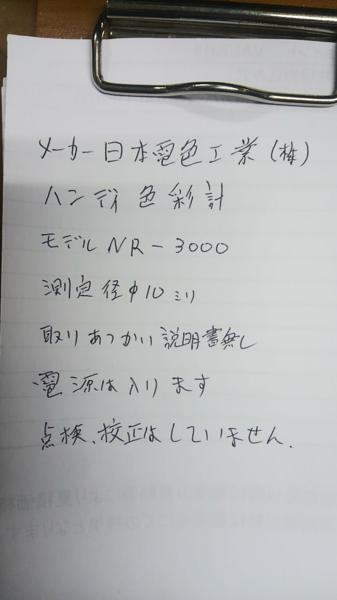 メーカー日本電色工業(株)
ハンディ色彩計
モデルNR-3000
測定径Φ10ミリ
取りあつかい説明書無し
電源は入ります
点検、校正はしていません.